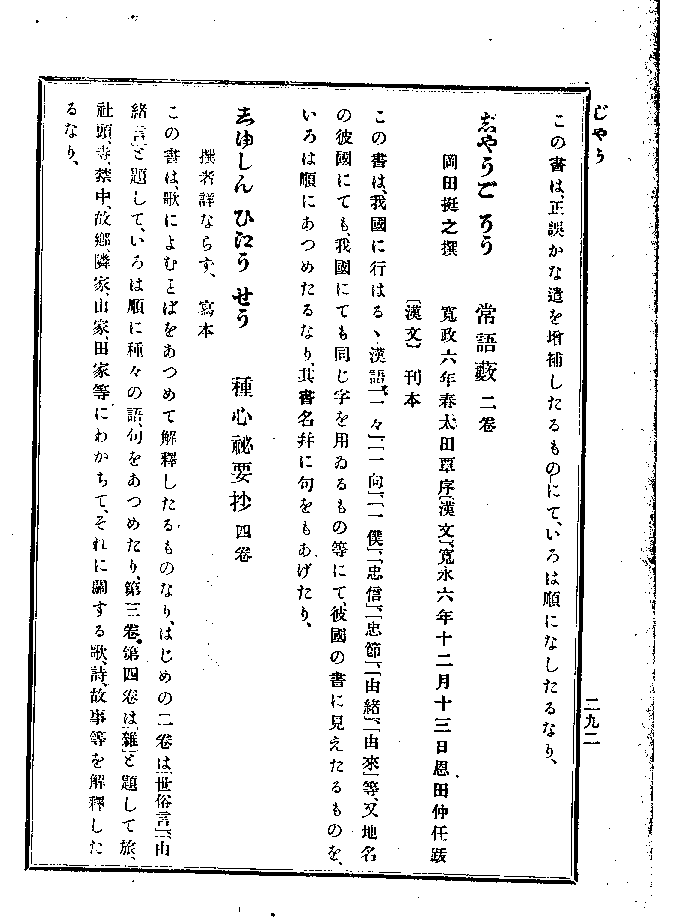 じやう
二九二
この書は、正誤かな遣を増補したるものにて、いろは順になしたるなり、
志やうご ろう 常語藪 二卷
岡田挺之撰 寛政六年春太田覃序〔漢文〕、寛永六年十二月十三日恩田仲任跋
〔漢文〕 刊本
この書は、我國に行はるゝ漢語、「一々」「一向」、「一僕」、「忠信」、「忠節」、「由緒」、「由來」等、又地名
の彼國にても、我國にても同じ字を用ゐるもの等にて、彼國の書に見えたるものを、
いろは順にあつめたるなり、其書名幷に句をもあげたり、
志ゆしん ひえう せう 種心祕要抄 四卷
撰者詳ならず、 寫本
この書は、歌によむことばをあつめて解釋したるものなり、はじめの二卷は「世俗言」、「由
緒言」と題して、いろは順に種々の語、句をあつめたり、第三卷。第四卷は「雜」と題して旅、
社頭、寺、禁中、故鄕、隣家、山家、田家等にわかちて、それに關する歌、詩、故事等を解釋した
るなり、